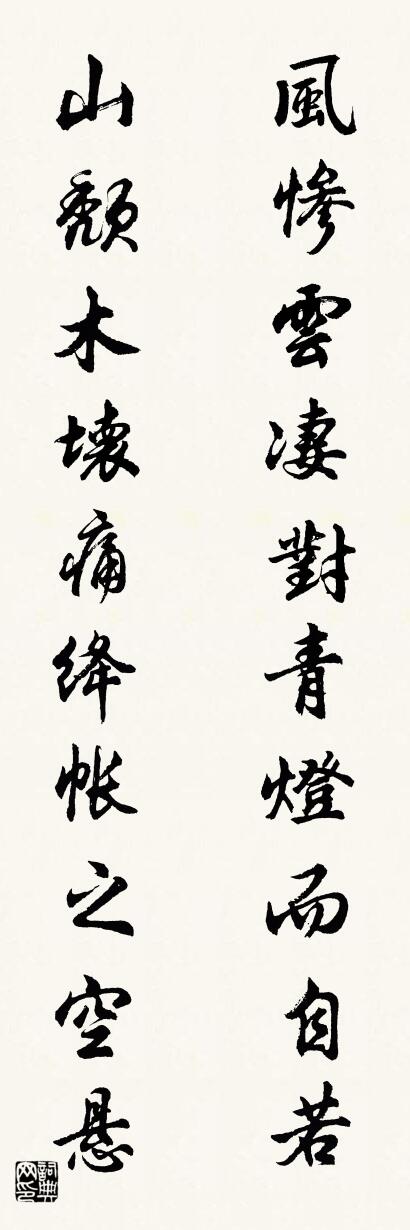 風慘雲凄對青燈而自若
山頹木壞痛絳帳之空懸
詞典網印